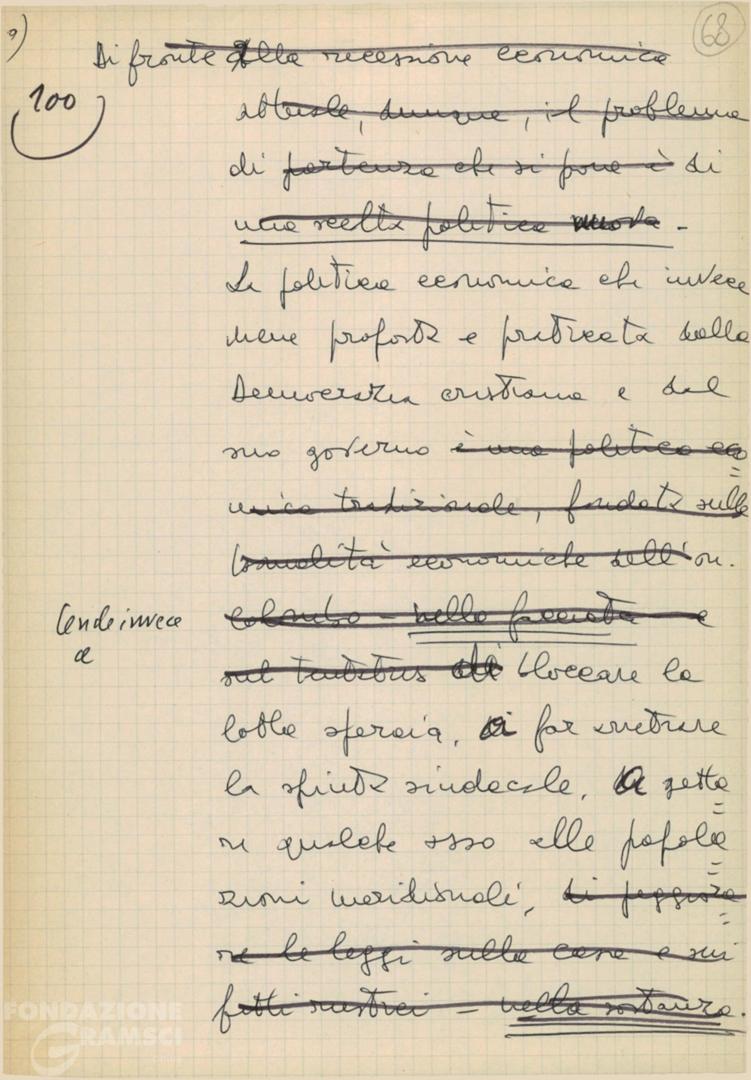 9)
68
100
Di fronte alla recessione economica
attuale, dunque, il problema
di partenza che si pone è di
una scelta politica nuova.
La politica economica che invece
viene proposta e praticata dalla
Democrazia cristiana e dal
suo governo è una politica eco=
nomica tradizionale, fondata sulle
banalità economiche dell'on.
Colombo - nella facciata - e
tende invece
a
sul tentativo di bloccare la
lotta operaia, a far arretrare
la spinta sindacale, a getta=
re qualche osso alle popola=
zioni meridionali, di peggiora=
re le leggi sulla casa e sui
fitti rustici - nella sostanza.
FONDAZIONE
GRAMSCI